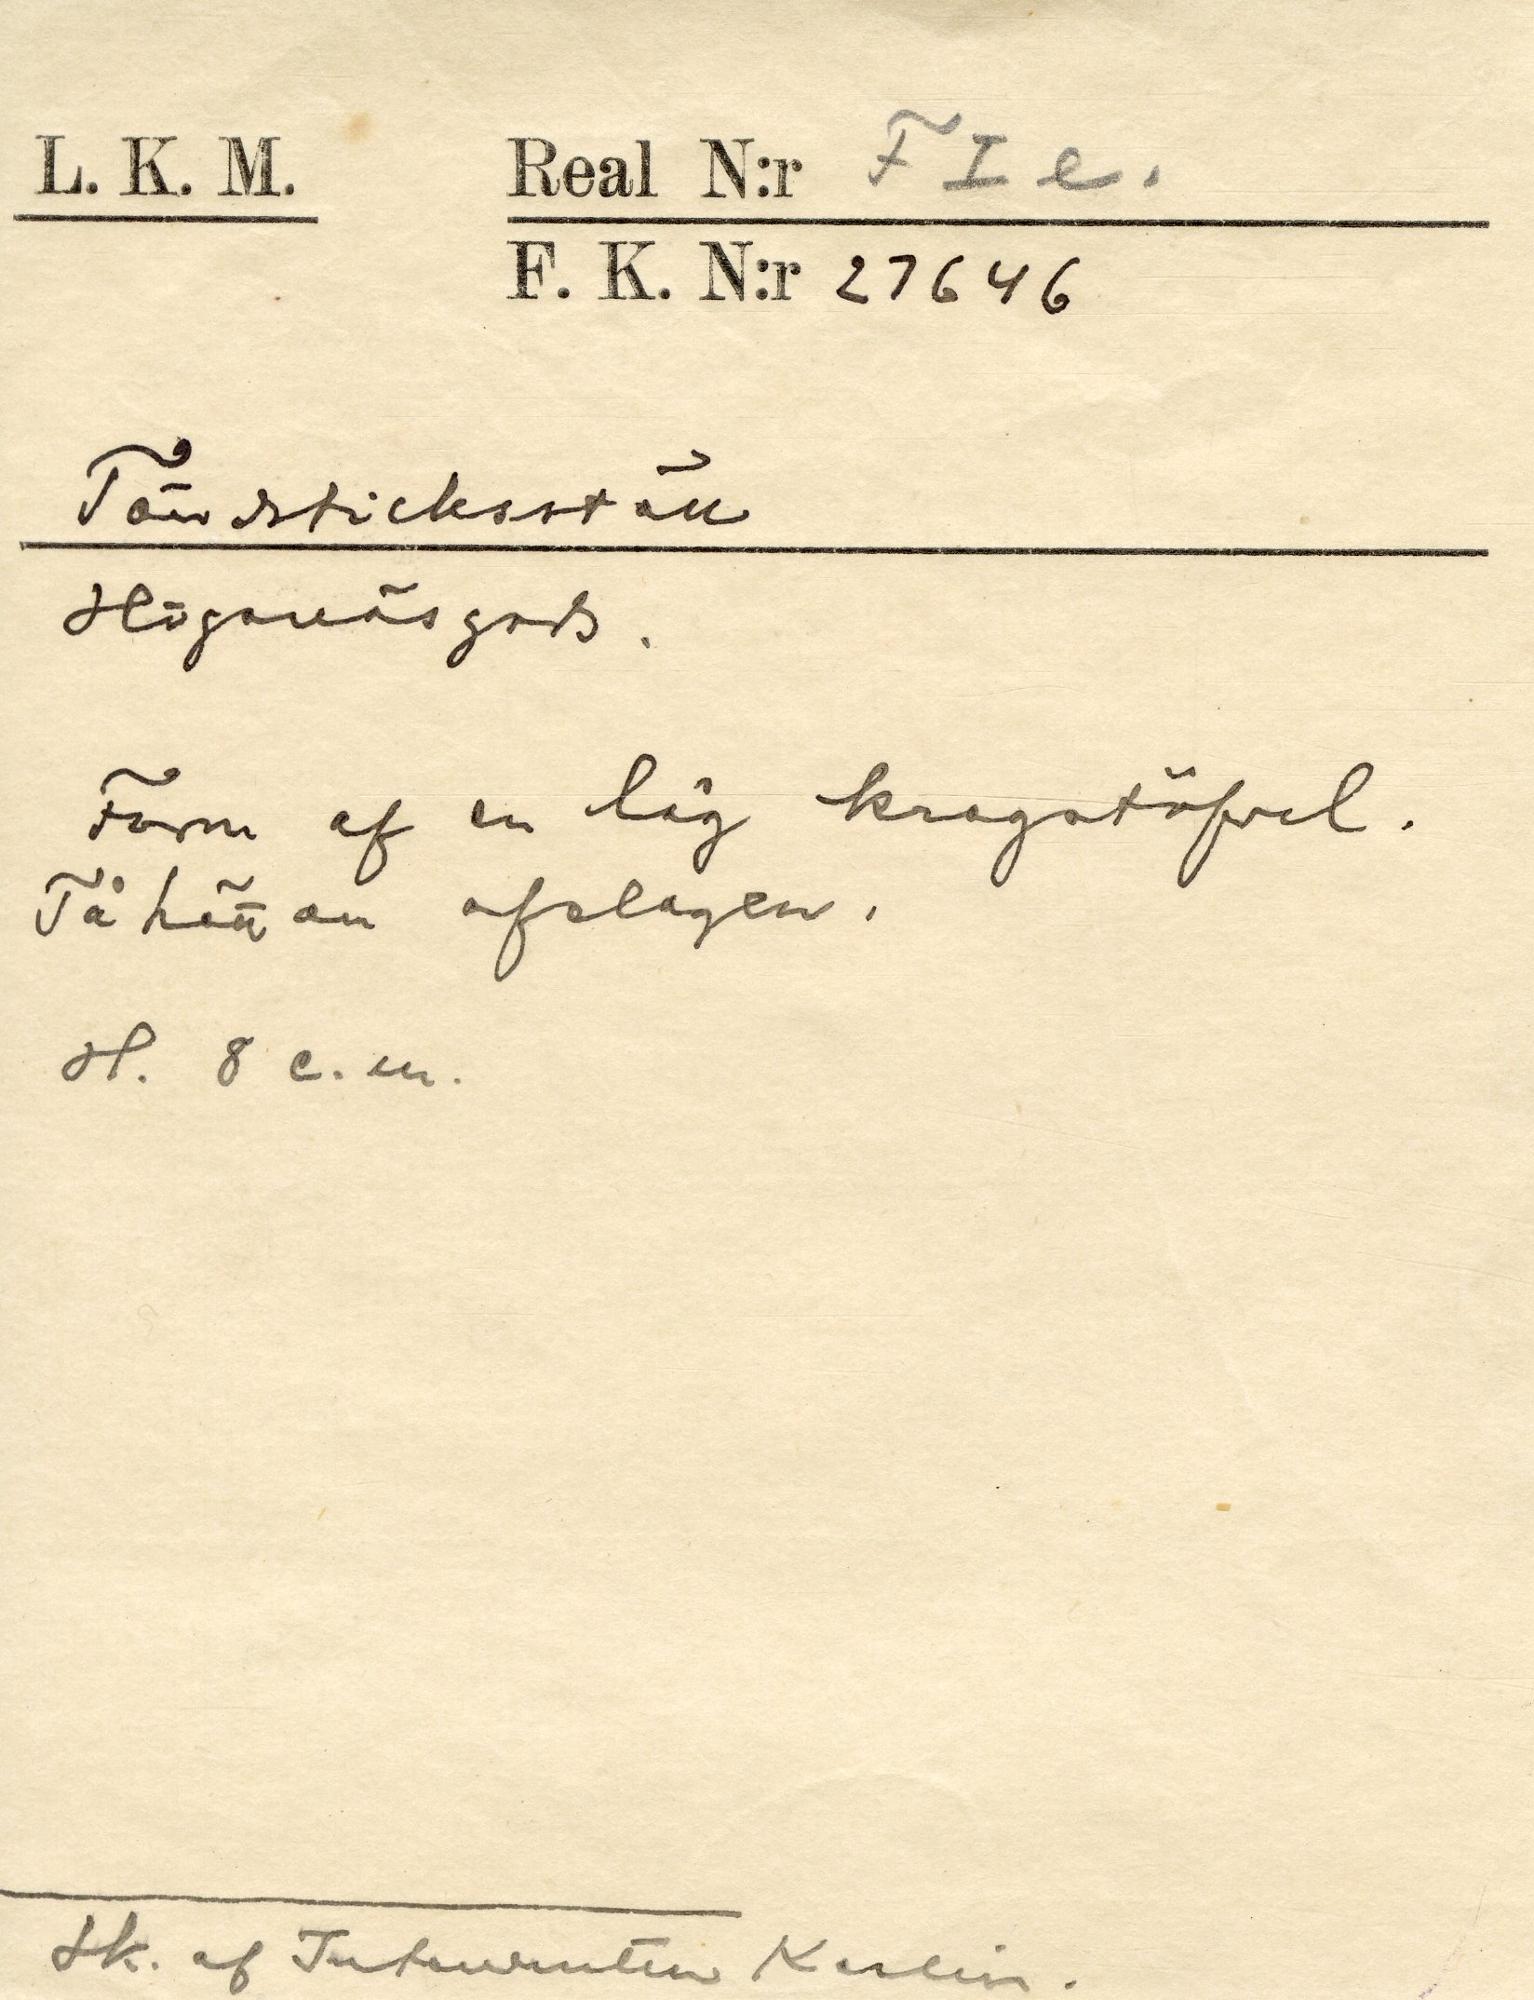 L. K. M. Real N:r F I e.
F. K. N:r 27646
Tändsticksställ
Höganäsgods.
Form af en låg kragstöfvel.
Tåhättan afslagen.
H. 8 c.m.
Sk. af Intendenten Karlin.